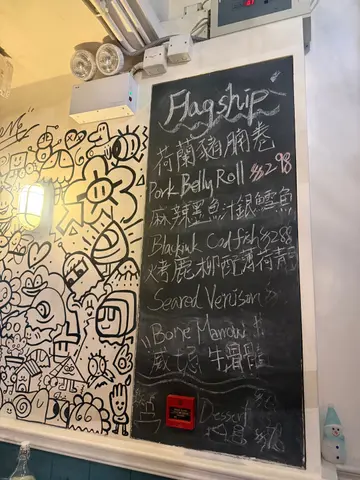 Flagship
荷蘭豬腩卷
Pork Belly Roll $298
麻辣墨魚汁銀鱈魚
Blackink Codfish $288
烤鹿柳配薄荷
Seared Venison
"Bone Marrow
威士忌 牛骨髓
Dessert